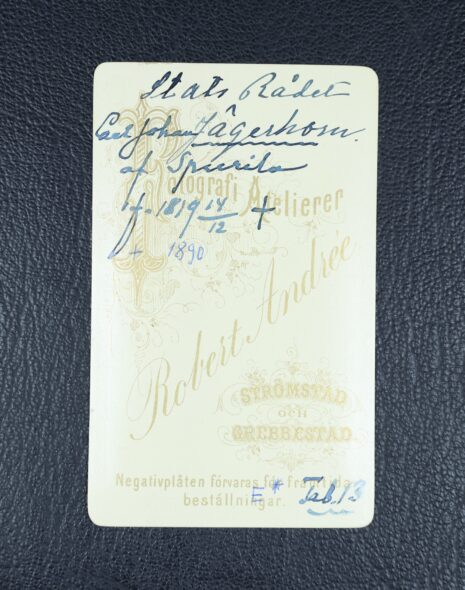 Stats Rådet
Carl Johan Jägerhorn.
af Spurila
f. 1819 14/12 +
+ 1890
Fotografi Atelierer
Robert Andrée
STRÖMSTAD
och
GREBBESTAD.
Negativplåten förvaras för framtida
beställningar.
E * Tab. 13